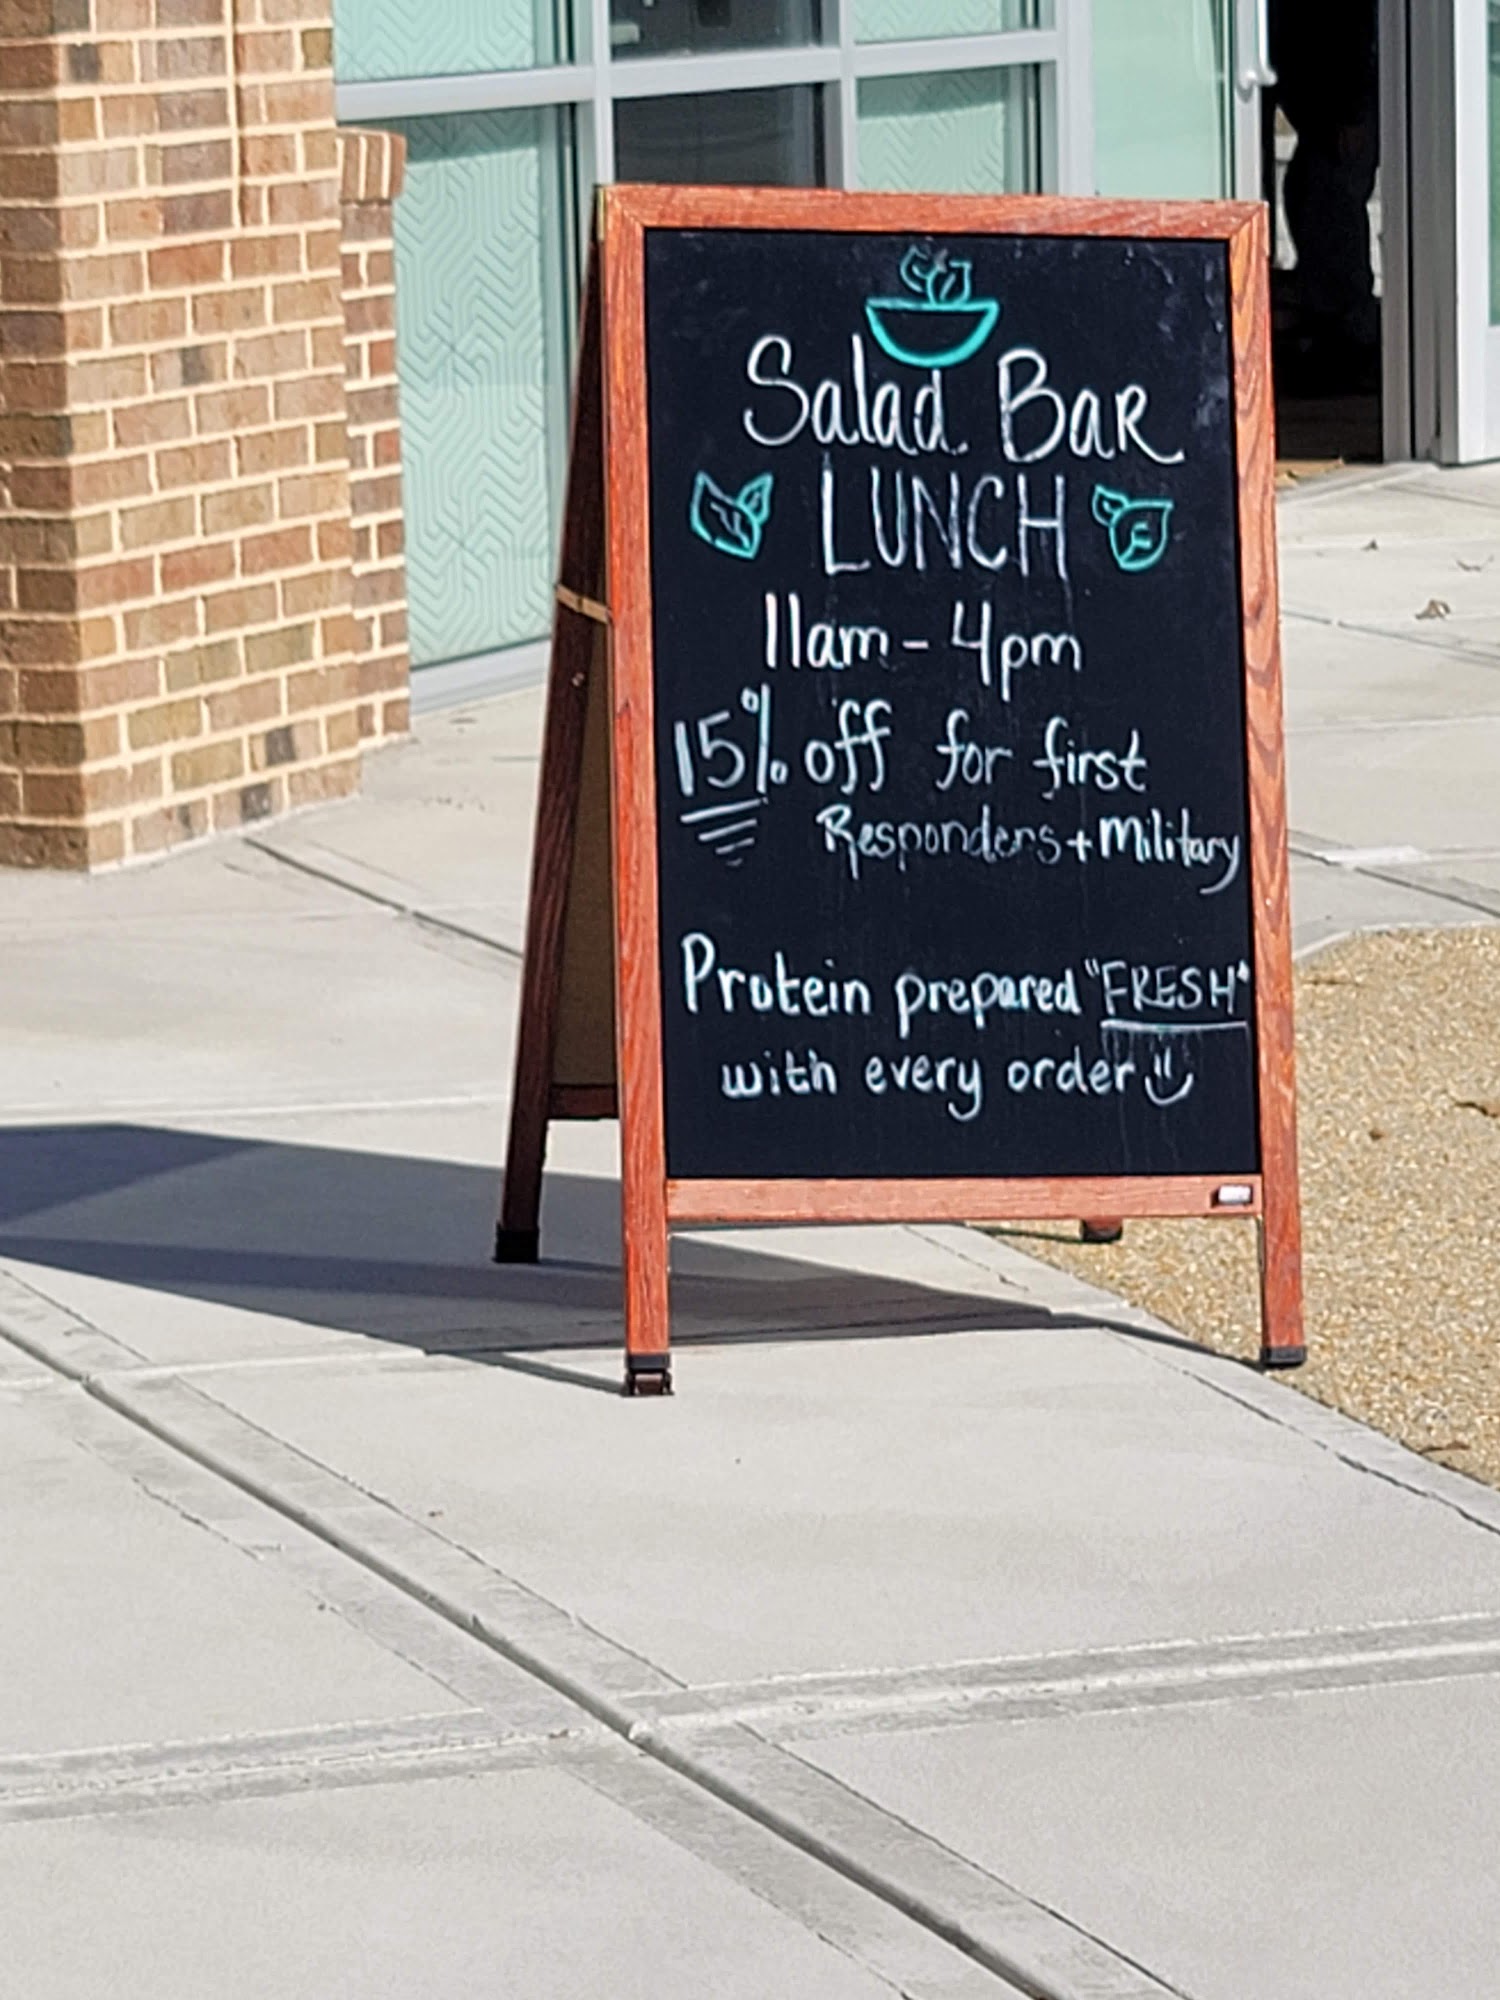 Salad Bar
LUNCH
11am - 4pm
15% off for first
Responders + Military
Protein prepared "FRESH"
with every order